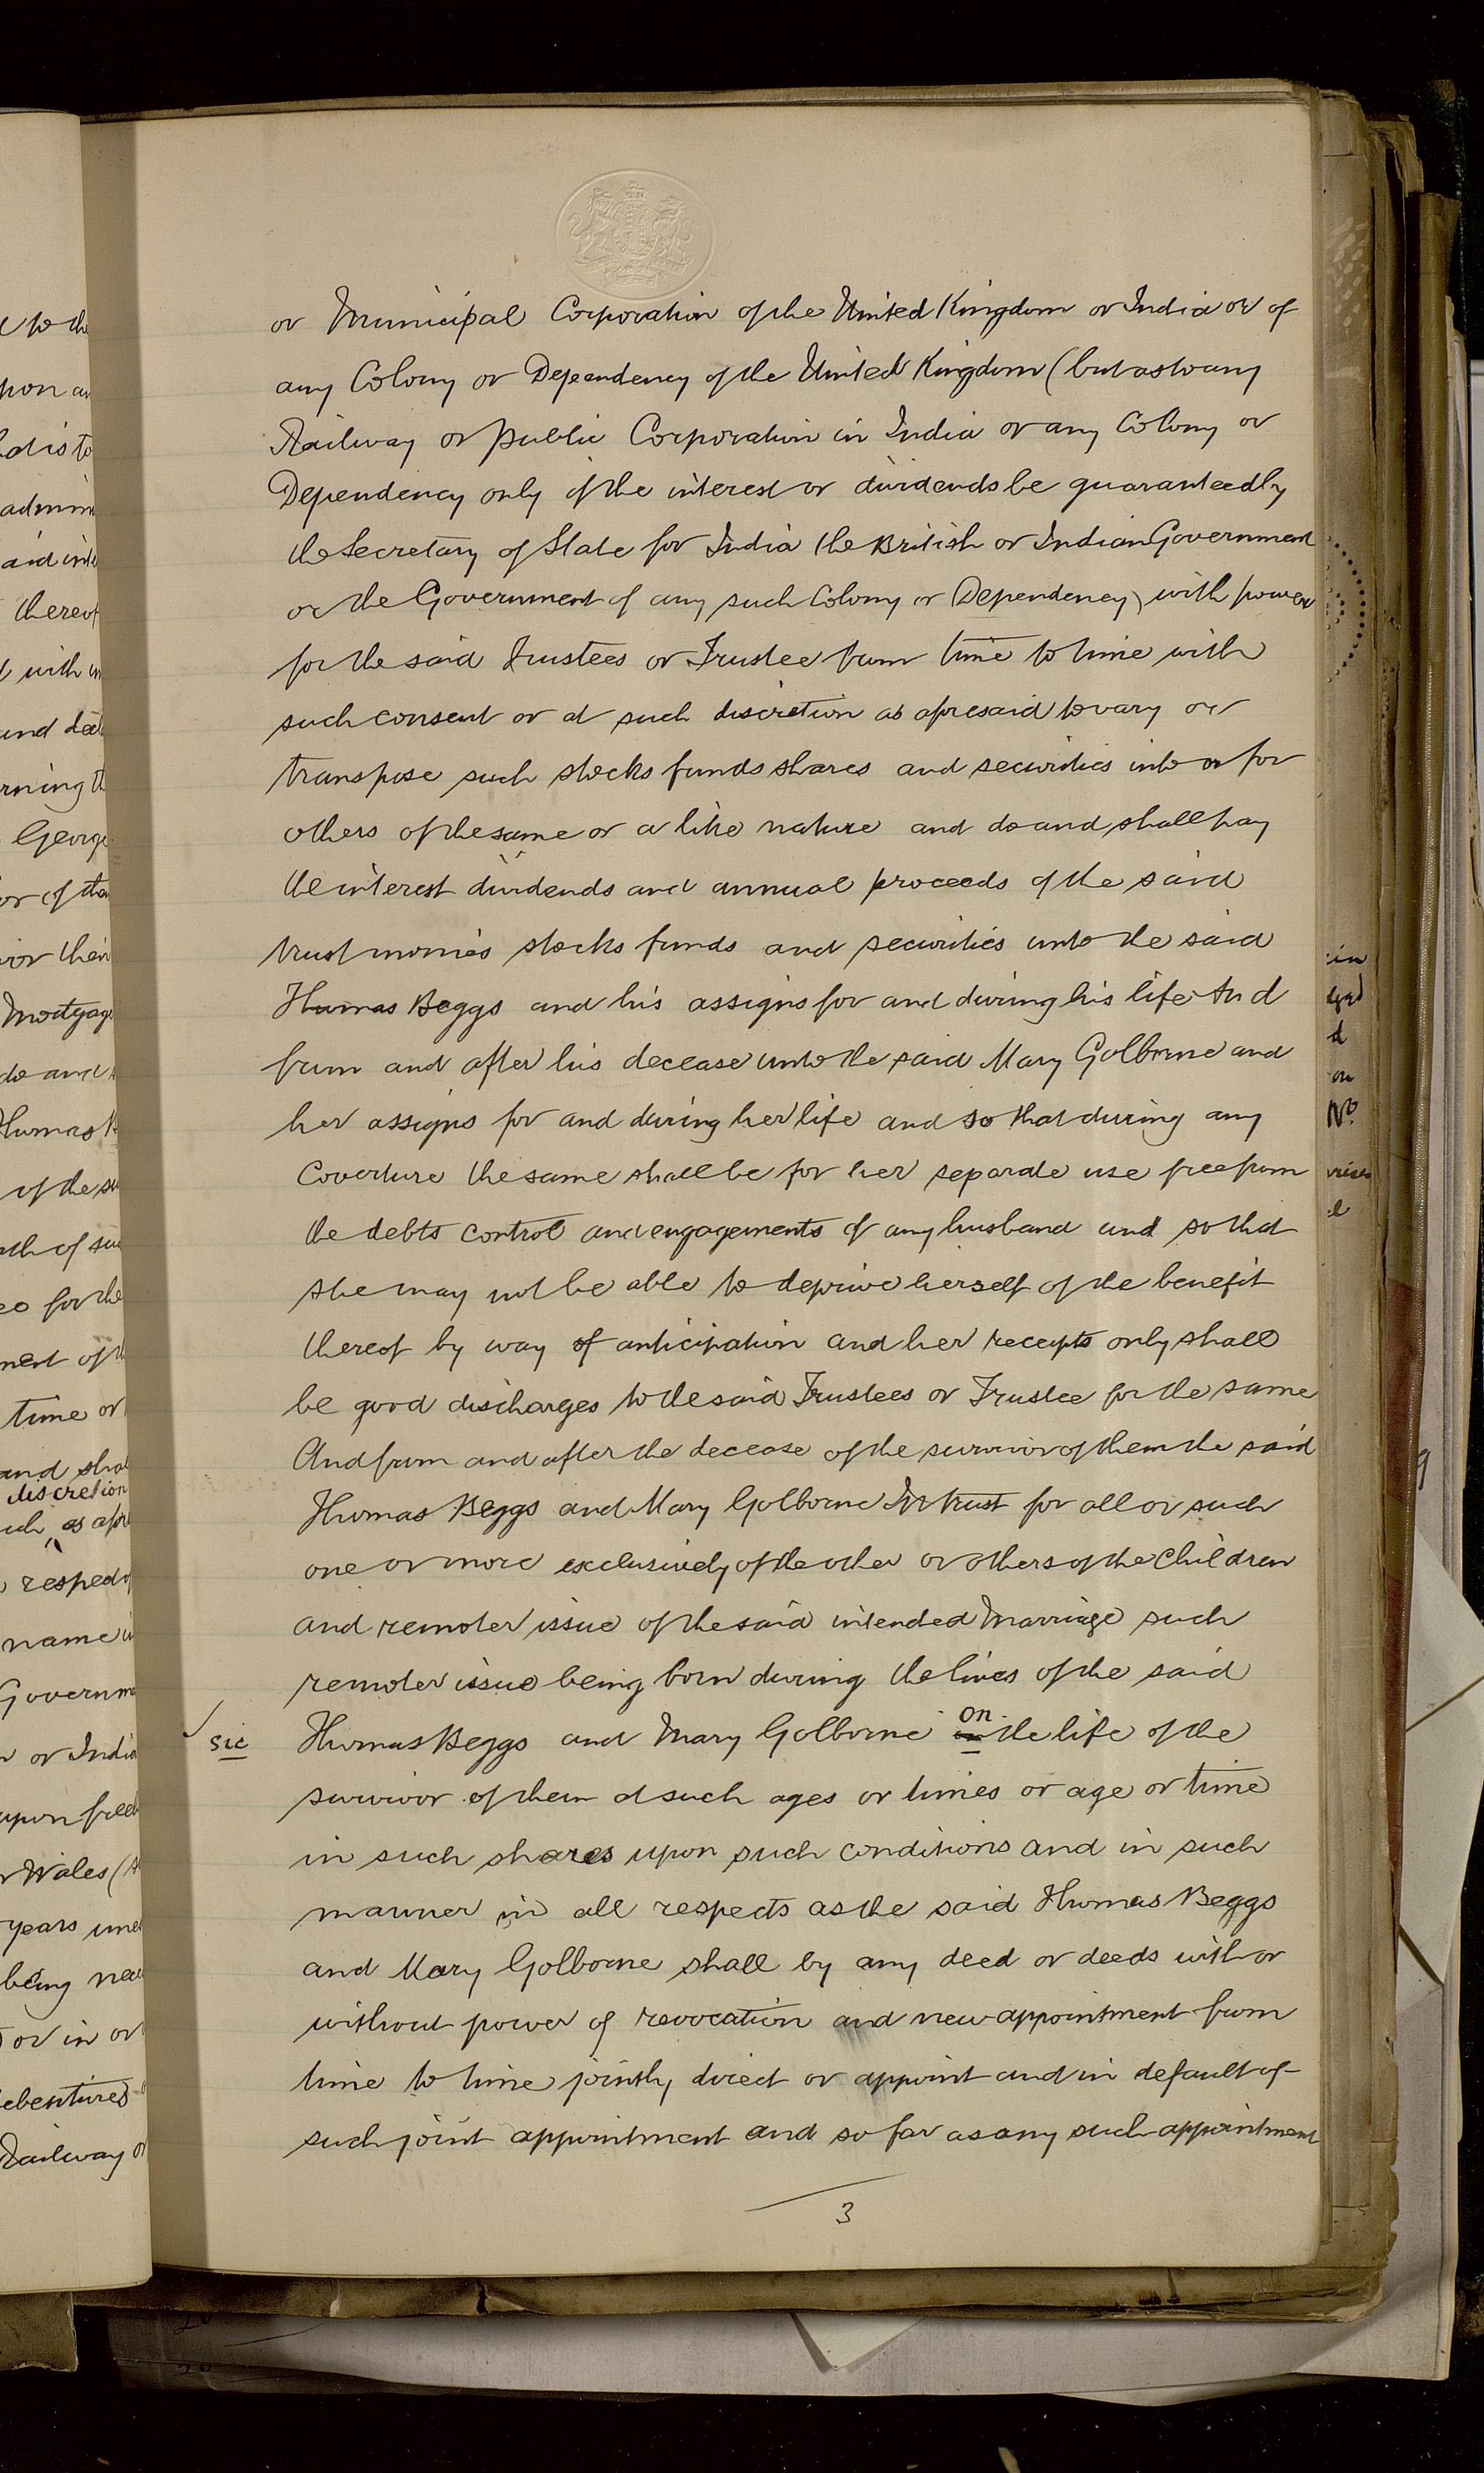 or Municipal Corporation of the United Kingdom or India or of
any Colony or Dependency of the United Kingdom (but as to any
Railway or public Corporation in India or any Colony or
Dependency only if the interest or dividends be guaranteed by
the Secretary of State for India the British or Indian Government
or the Government of any such Colony or Dependency) with power
for the said Trustees or Trustee from time to time with
such consent or at such discretion as aforesaid to vary or
transpose such stocks funds shares and securities into or for
others of the same or a like nature and do and shall pay
the interest dividends and annual proceeds of the said
trust monies stocks funds and securities unto the said
Thomas Beggs and his assigns for and during his life And
from and after his decease unto the said Mary Golborne and
her assigns for and during her life and so that during any
Coverture the same shall be for her separate use free from
the debts control and engagements of any husband and so that
she may not be able to deprive herself of the benefit
thereof by way of anticipation and her receipts only shall
be good discharges to the said Trustees or Trustee for the same
And from and after the decease of the survivor of them the said
Thomas Beggs and Mary Golborne In trust for all or such
one or more exclusively of the other or others of the Children
and remoter issue of the said intended Marriage such
remoter issue being born during the lives of the said
sic Thomas Beggs and Mary Golborne on the life of the
survivor of them at such ages or times or age or time
in such shares upon such conditions and in such
manner in all respects as the said Thomas Beggs
and Mary Golborne shall by any deed or deeds with or
without power of revocation and new appointment from
time to time jointly direct or appoint and in default of
such joint appointment and so far as any such appointment
3